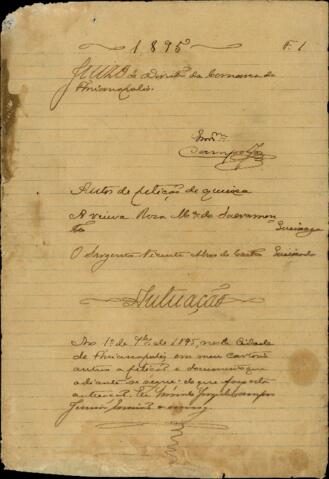 1895 F. 1
Juizo de Direito da Comarca de
Annapolis.
Campos
Autos de petição de queixa
A viuva Rosa Ma. do Sacramen
to Queixosa
O Sargento Vicente Alves de Castro Queixado
Autuação
Ao 1º de 7bro de 1895, nesta Cidade
de Annapolis, em meu cartorio
autuo a petição e documento que
adiante se segue; do que faço esta
autuação. Eu